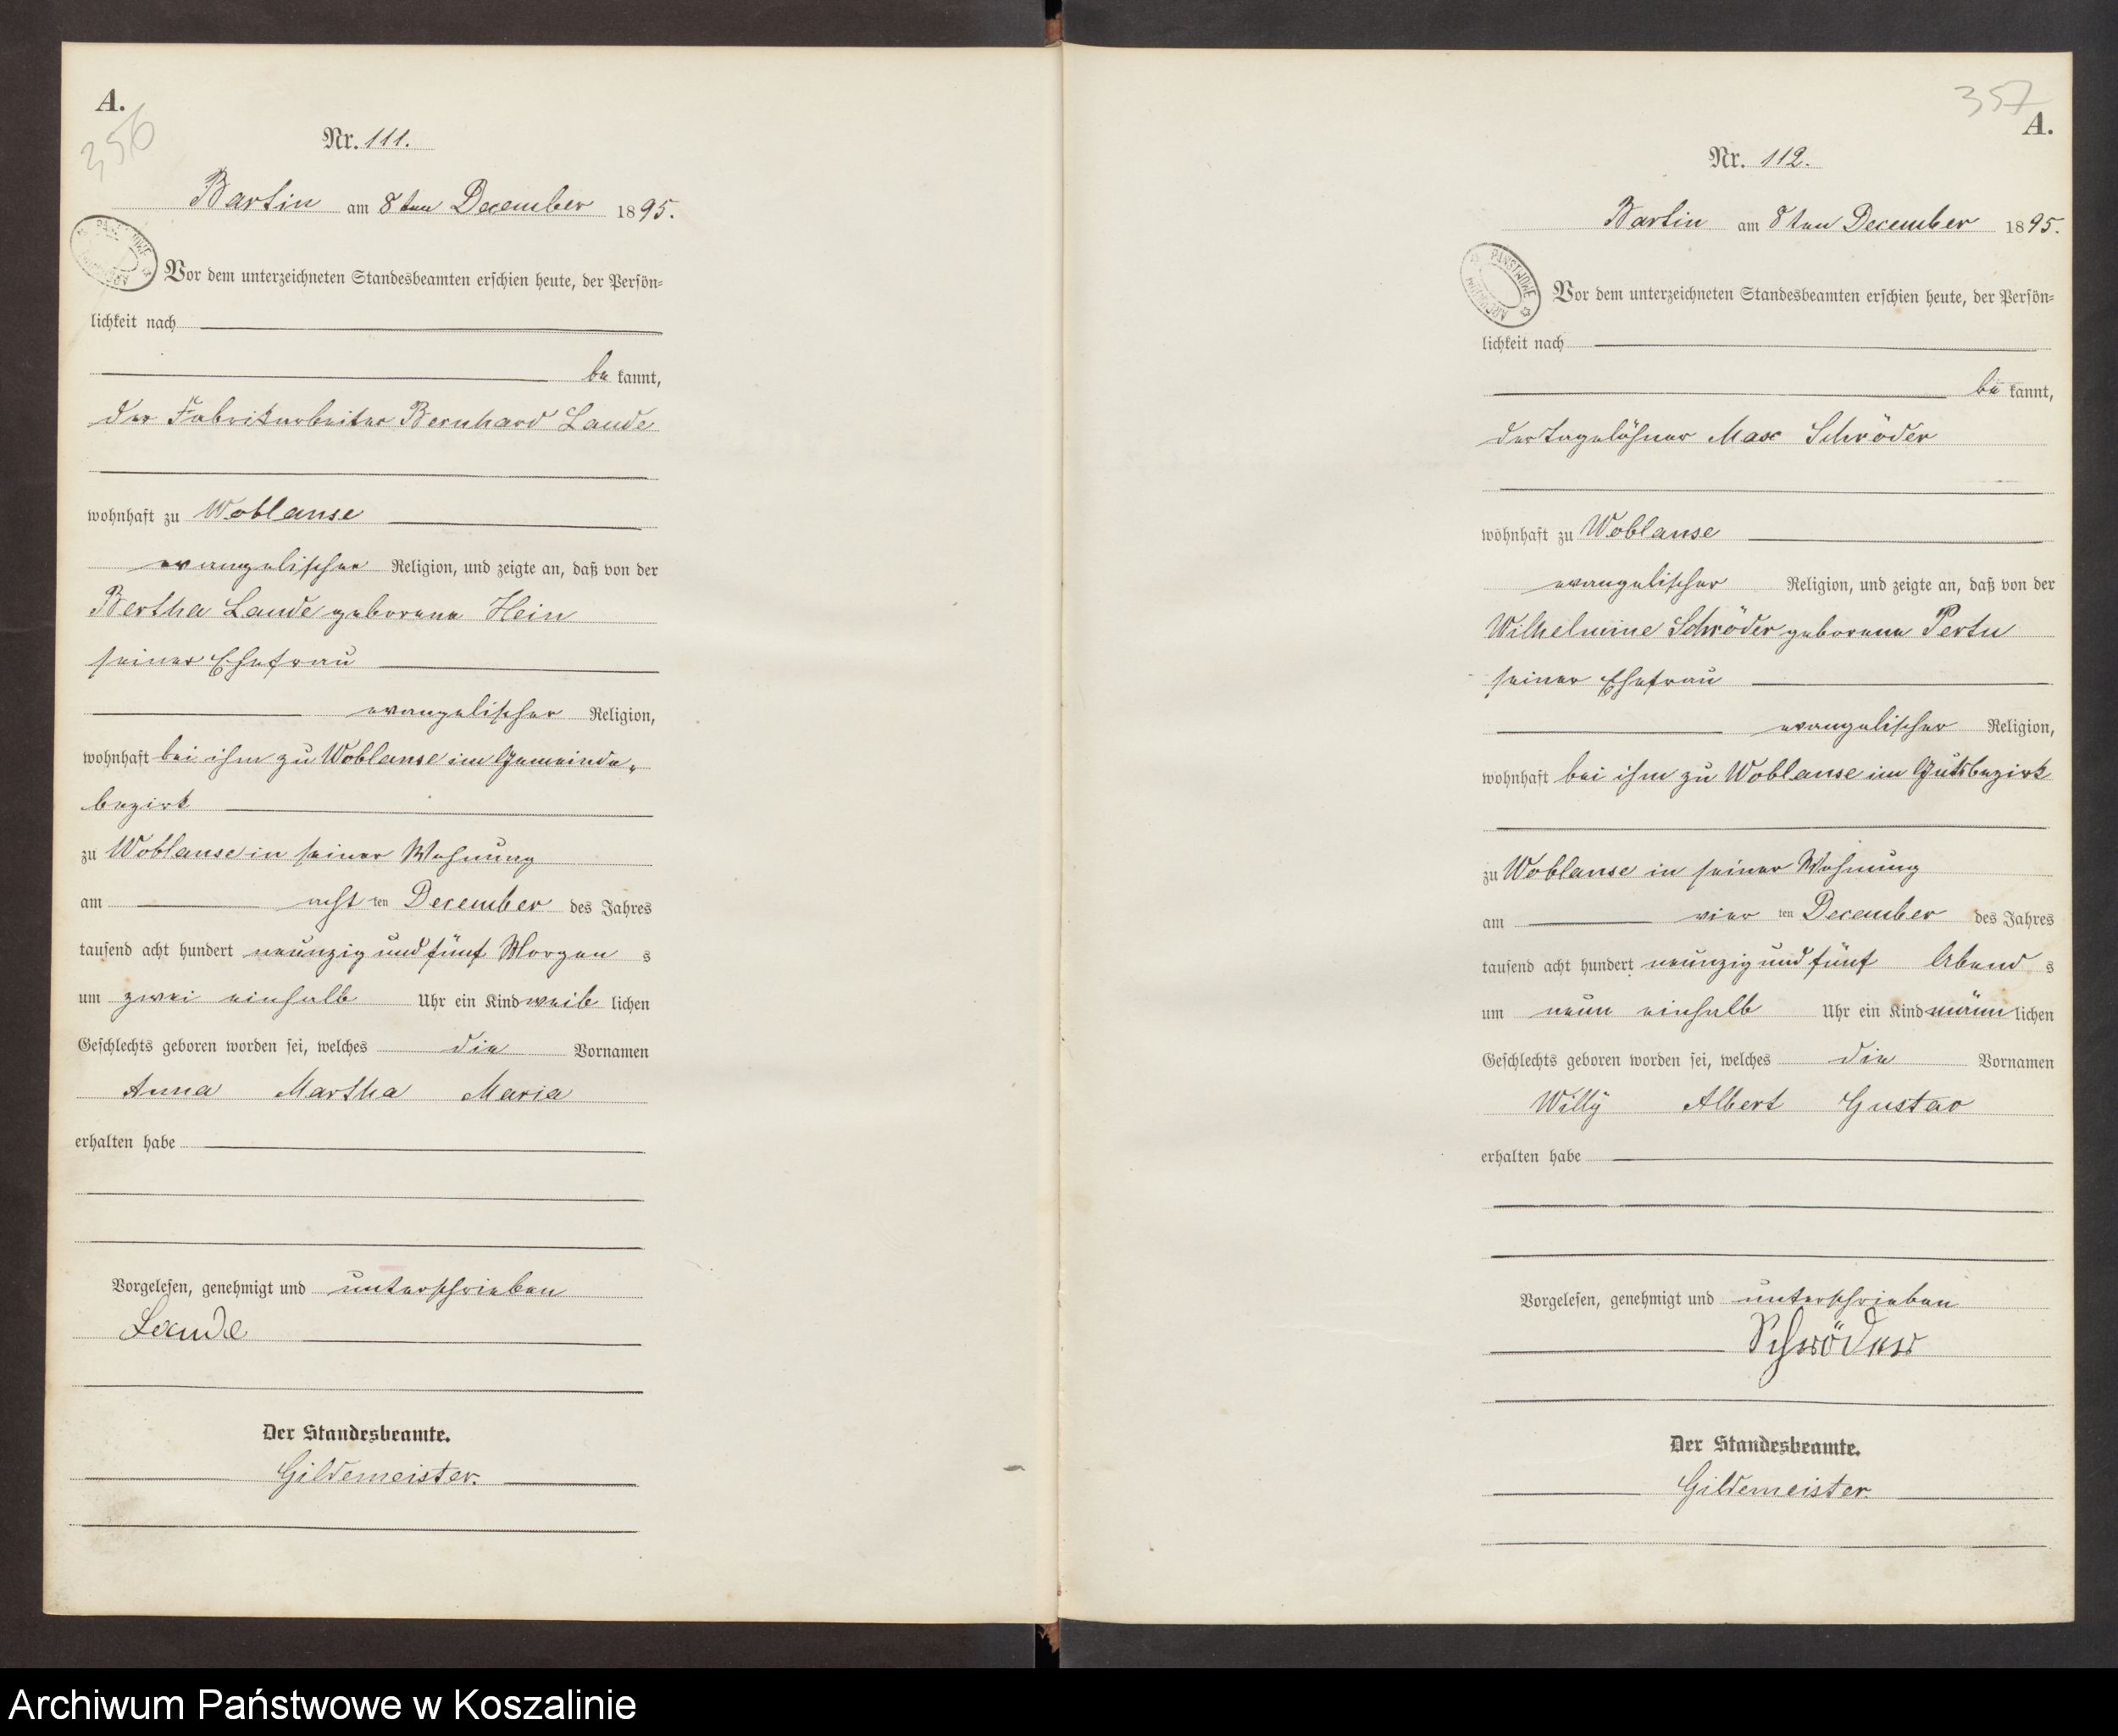 A.
356
Nr. 111.
Bartin am 8ten December 1895.
Vor dem unterzeichneten Standesbeamten erschien heute, der Persön=
lichkeit nach
be kannt,
der Fabrikarbeiter Bernhard Laude
wohnhaft zu Woblanse
evangelischer Religion, und zeigte an, daß von der
Bertha Laude geborene Hein
seiner Ehefrau
evangelischer Religion,
wohnhaft bei ihm zu Woblanse im Gemeinde-
bezirk
zu Woblanse in seiner Wohnung
am acht ten December des Jahres
tausend acht hundert neunzig und fünf Morgen s
um zwei einhalb Uhr ein Kind weib lichen
Geschlechts geboren worden sei, welches die Vornamen
Anna Martha Maria
erhalten habe
Vorgelesen, genehmigt und unterschrieben
Laude
Der Standesbeamte.
Gildemeister.
357
A.
Nr. 112.
Bartin am 8ten December 1895.
PAŃSTWOWE ARCHIWUM
Vor dem unterzeichneten Standesbeamten erschien heute, der Persön=
lichkeit nach
be kannt,
der Tagelöhner Max Schröder
wohnhaft zu Woblanse
evangelischer Religion, und zeigte an, daß von der
Wilhelmine Schröder geborene
seiner Ehefrau
evangelischer Religion,
wohnhaft bei ihm zu Woblanse im Gutsbezirk
zu Woblanse in seiner Wohnung
am vier ten December des Jahres
tausend acht hundert neunzig und fünf Abend s
um neun einhalb Uhr ein Kind männ lichen
Geschlechts geboren worden sei, welches die Vornamen
Willy Albert Gustav
erhalten habe
Vorgelesen, genehmigt und unterschrieben
Schröder
Der Standesbeamte.
Gildemeister.
Archiwum Państwowe w Koszalinie